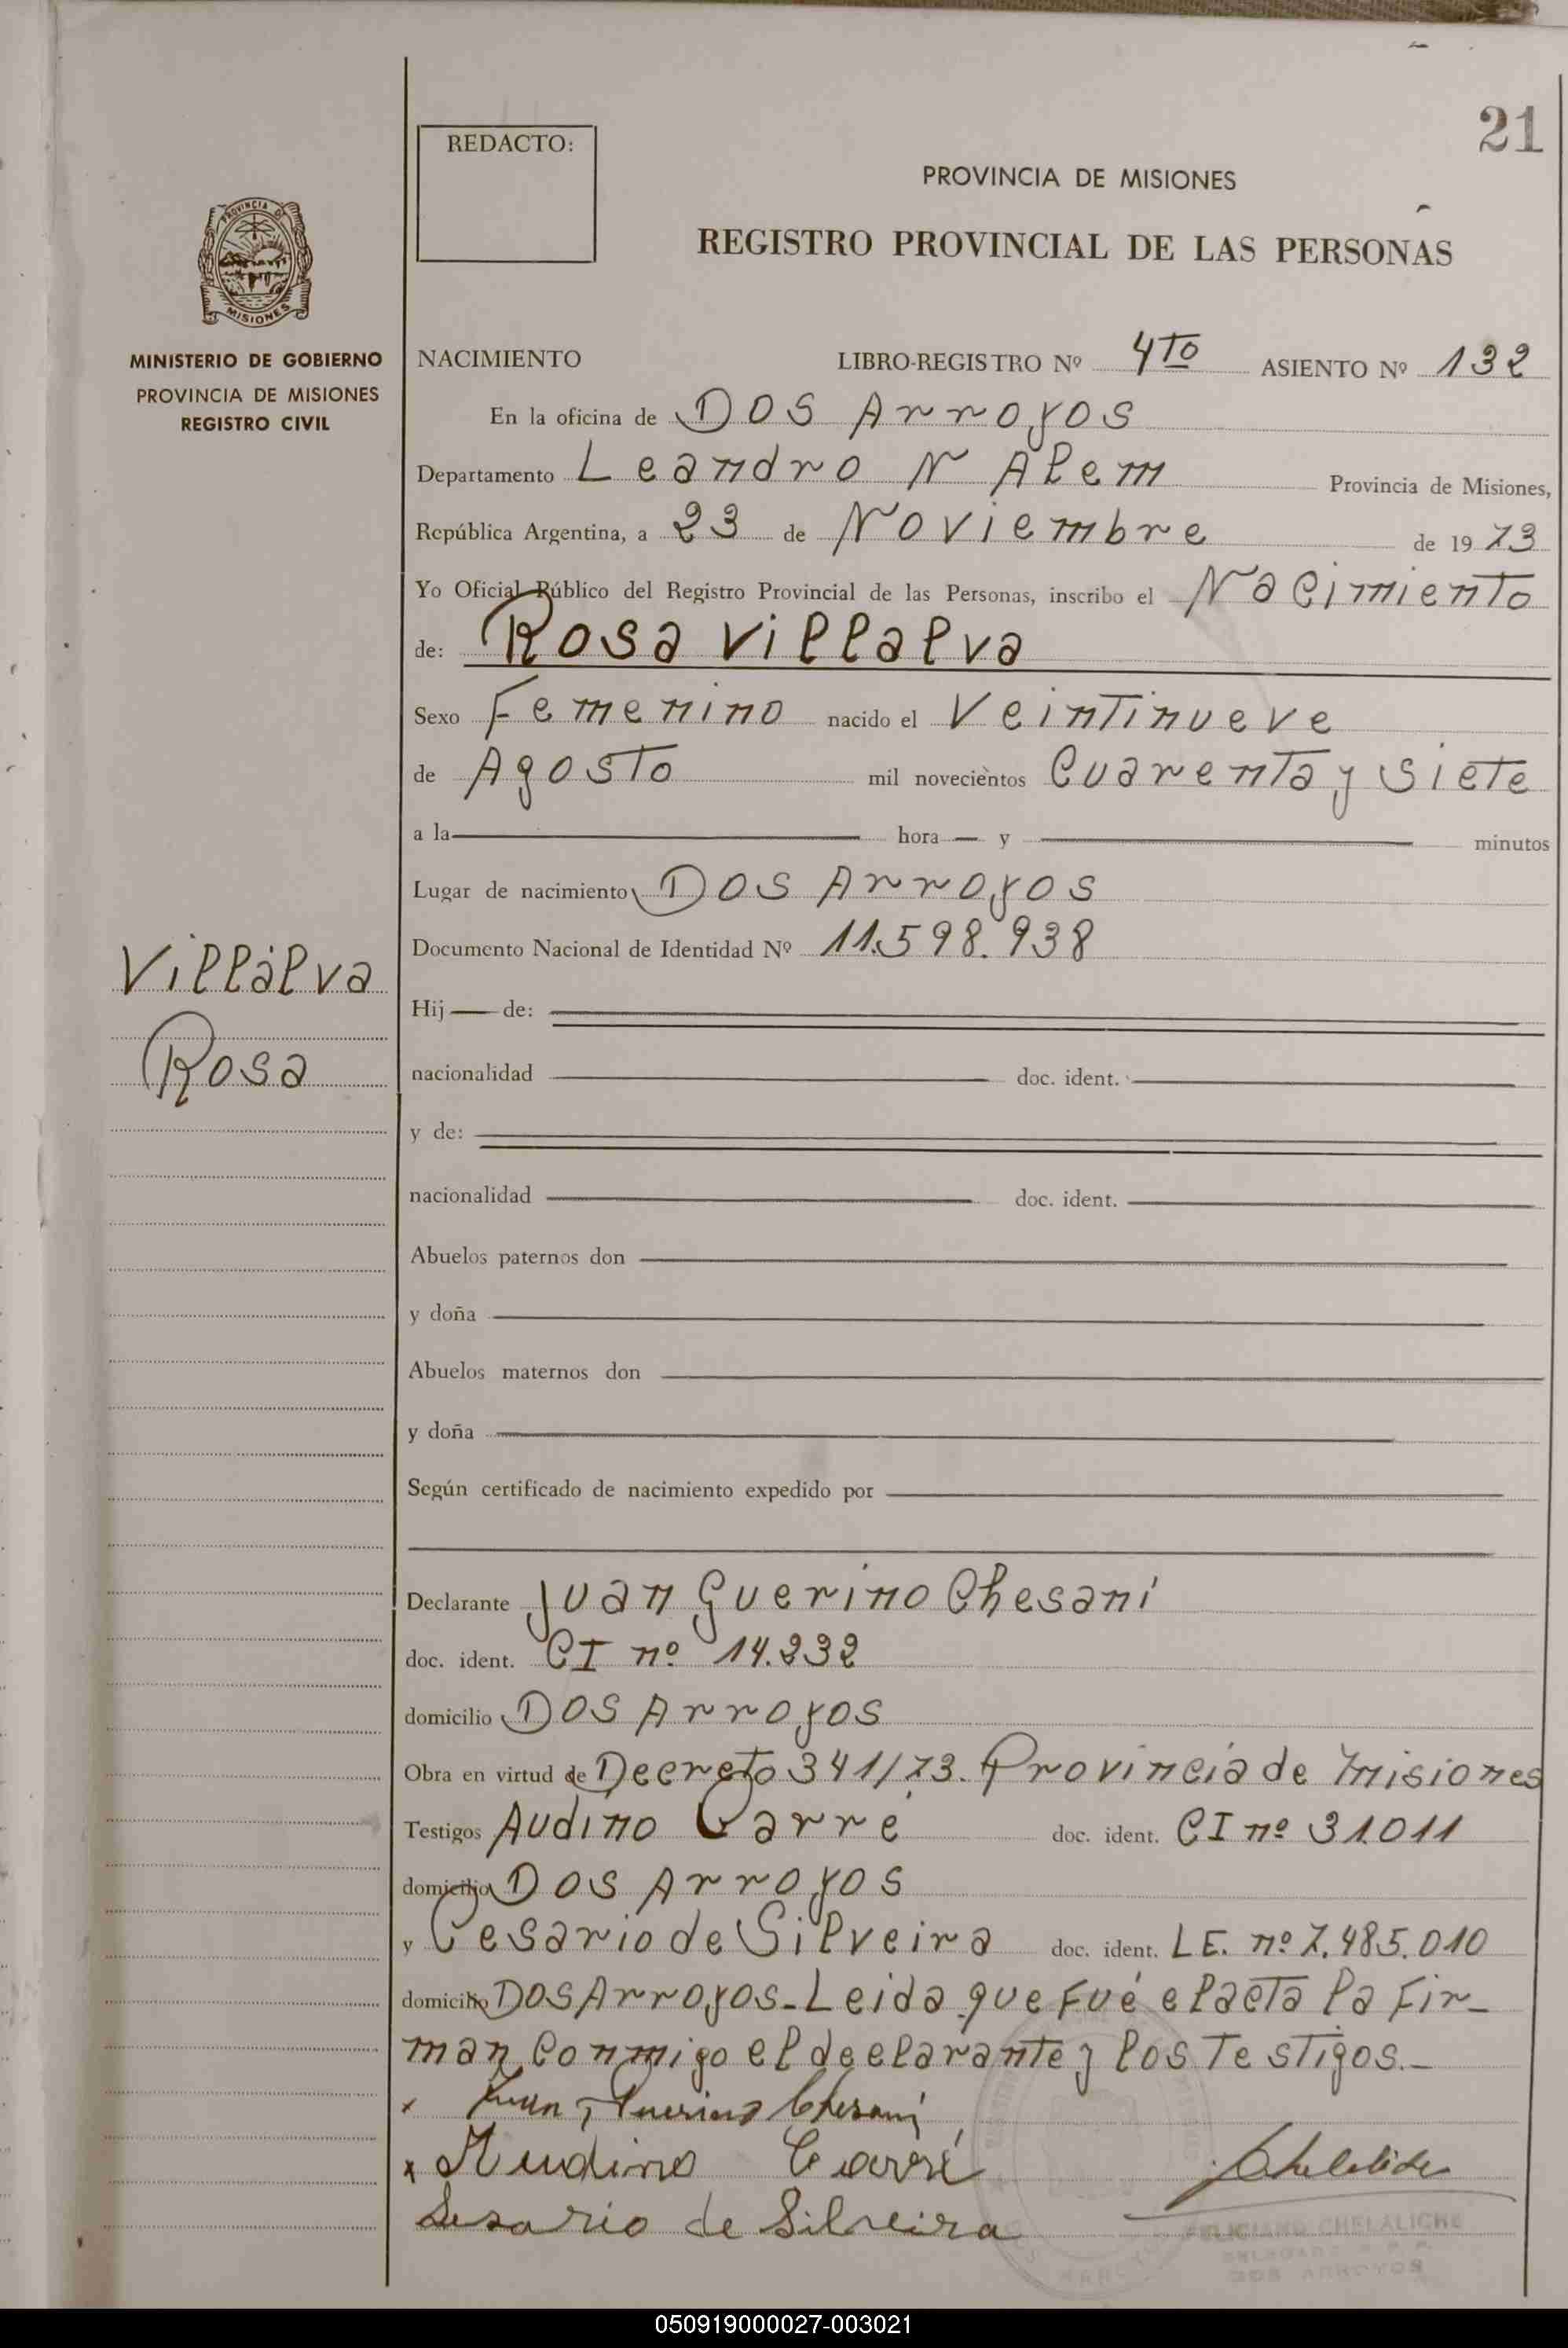 21
REDACTO:
PROVINCIA DE MISIONES
REGISTRO PROVINCIAL DE LAS PERSONAS
PROVINCIA DE
MISIONES
MINISTERIO DE GOBIERNO
PROVINCIA DE MISIONES
REGISTRO CIVIL
NACIMIENTO LIBRO-REGISTRO Nº 4to ASIENTO Nº 132
En la oficina de Dos Arroyos
Departamento Leandro N Alem Provincia de Misiones,
República Argentina, a 23 de Noviembre de 1973
Yo Oficial Público del Registro Provincial de las Personas, inscribo el Nacimiento
de: Rosa Villalva
Sexo Femenino nacido el Veintinueve
de Agosto mil novecientos Cuarenta y siete
a la hora y minutos
Lugar de nacimiento Dos Arroyos
Documento Nacional de Identidad Nº 11.598.938
Villalva
Rosa
Hij de:
nacionalidad doc. ident.
y de:
nacionalidad doc. ident.
Abuelos paternos don
y doña
Abuelos maternos don
y doña
Según certificado de nacimiento expedido por
Declarante Juan Guerino Chesani
doc. ident. CI nº 14.232
domicilio Dos Arroyos
Obra en virtud de Decreto 341/73. Provincia de Misiones
Testigos Audino Carré doc. ident. CI nº 31.011
domicilio Dos Arroyos
y Cesario de Silveira doc. ident. LE. nº 7.485.010
domicilio Dos Arroyos - Leida que fué el acta la fir-
man conmigo el declarante y los testigos.-
x Juan Guerino Chesani
x Audino Carré
Sesario de Silveira
FELICIANO CHELALICHE
DELEGADO R.P.P.
DOS ARROYOS
050919000027-003021